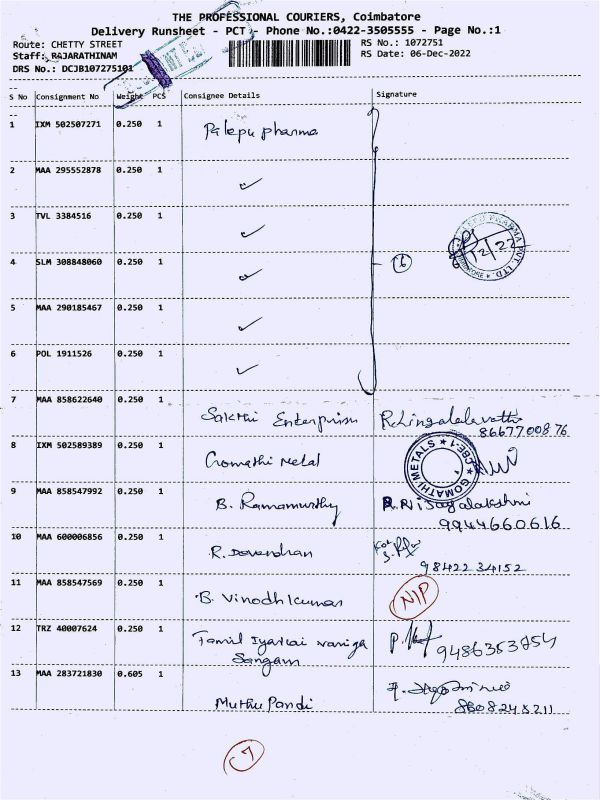 THE PROFESSIONAL COURIERS, Coimbatore
Delivery Runsheet - PCT - Phone No.:0422-3505555 - Page No.:1
Route: CHETTY STREET
RS No.: 1072751
Staff: RAJARATHINAM
RS Date: 06-Dec-2022
DRS No.: DCJB107275101
S No Consignment No Weight PCS Consignee Details Signature
1 IXM 502507271 0.250 1 Palepu pharma
2 MAA 295552878 0.250 1 ✓
3 TVL 3384516 0.250 1 ✓
PHARMA PVT. LTD.
12/22
4 SLM 308848060 0.250 1 ✓ 6
5 MAA 290185467 0.250 1 ✓
6 POL 1911526 0.250 1 ✓
7 MAA 858622640 0.250 1 Sakthi Enterprises
8667700876
8 IXM 502589389 0.250 1 Gomathi Metal GOMATHI METALS ★ CBE-1 ★
9 MAA 858547992 0.250 1 B. Ramamurthy R. Vijayalakshmi
9944660616
10 MAA 600006856 0.250 1 R. Devendhan
98422 34152
11 MAA 858547569 0.250 1 B. Vinodhkumar NIP
12 TRZ 40007624 0.250 1 Tamil Iyarkai vaniga
Sangam
13 MAA 283721830 0.605 1 Muthu Pandi
7